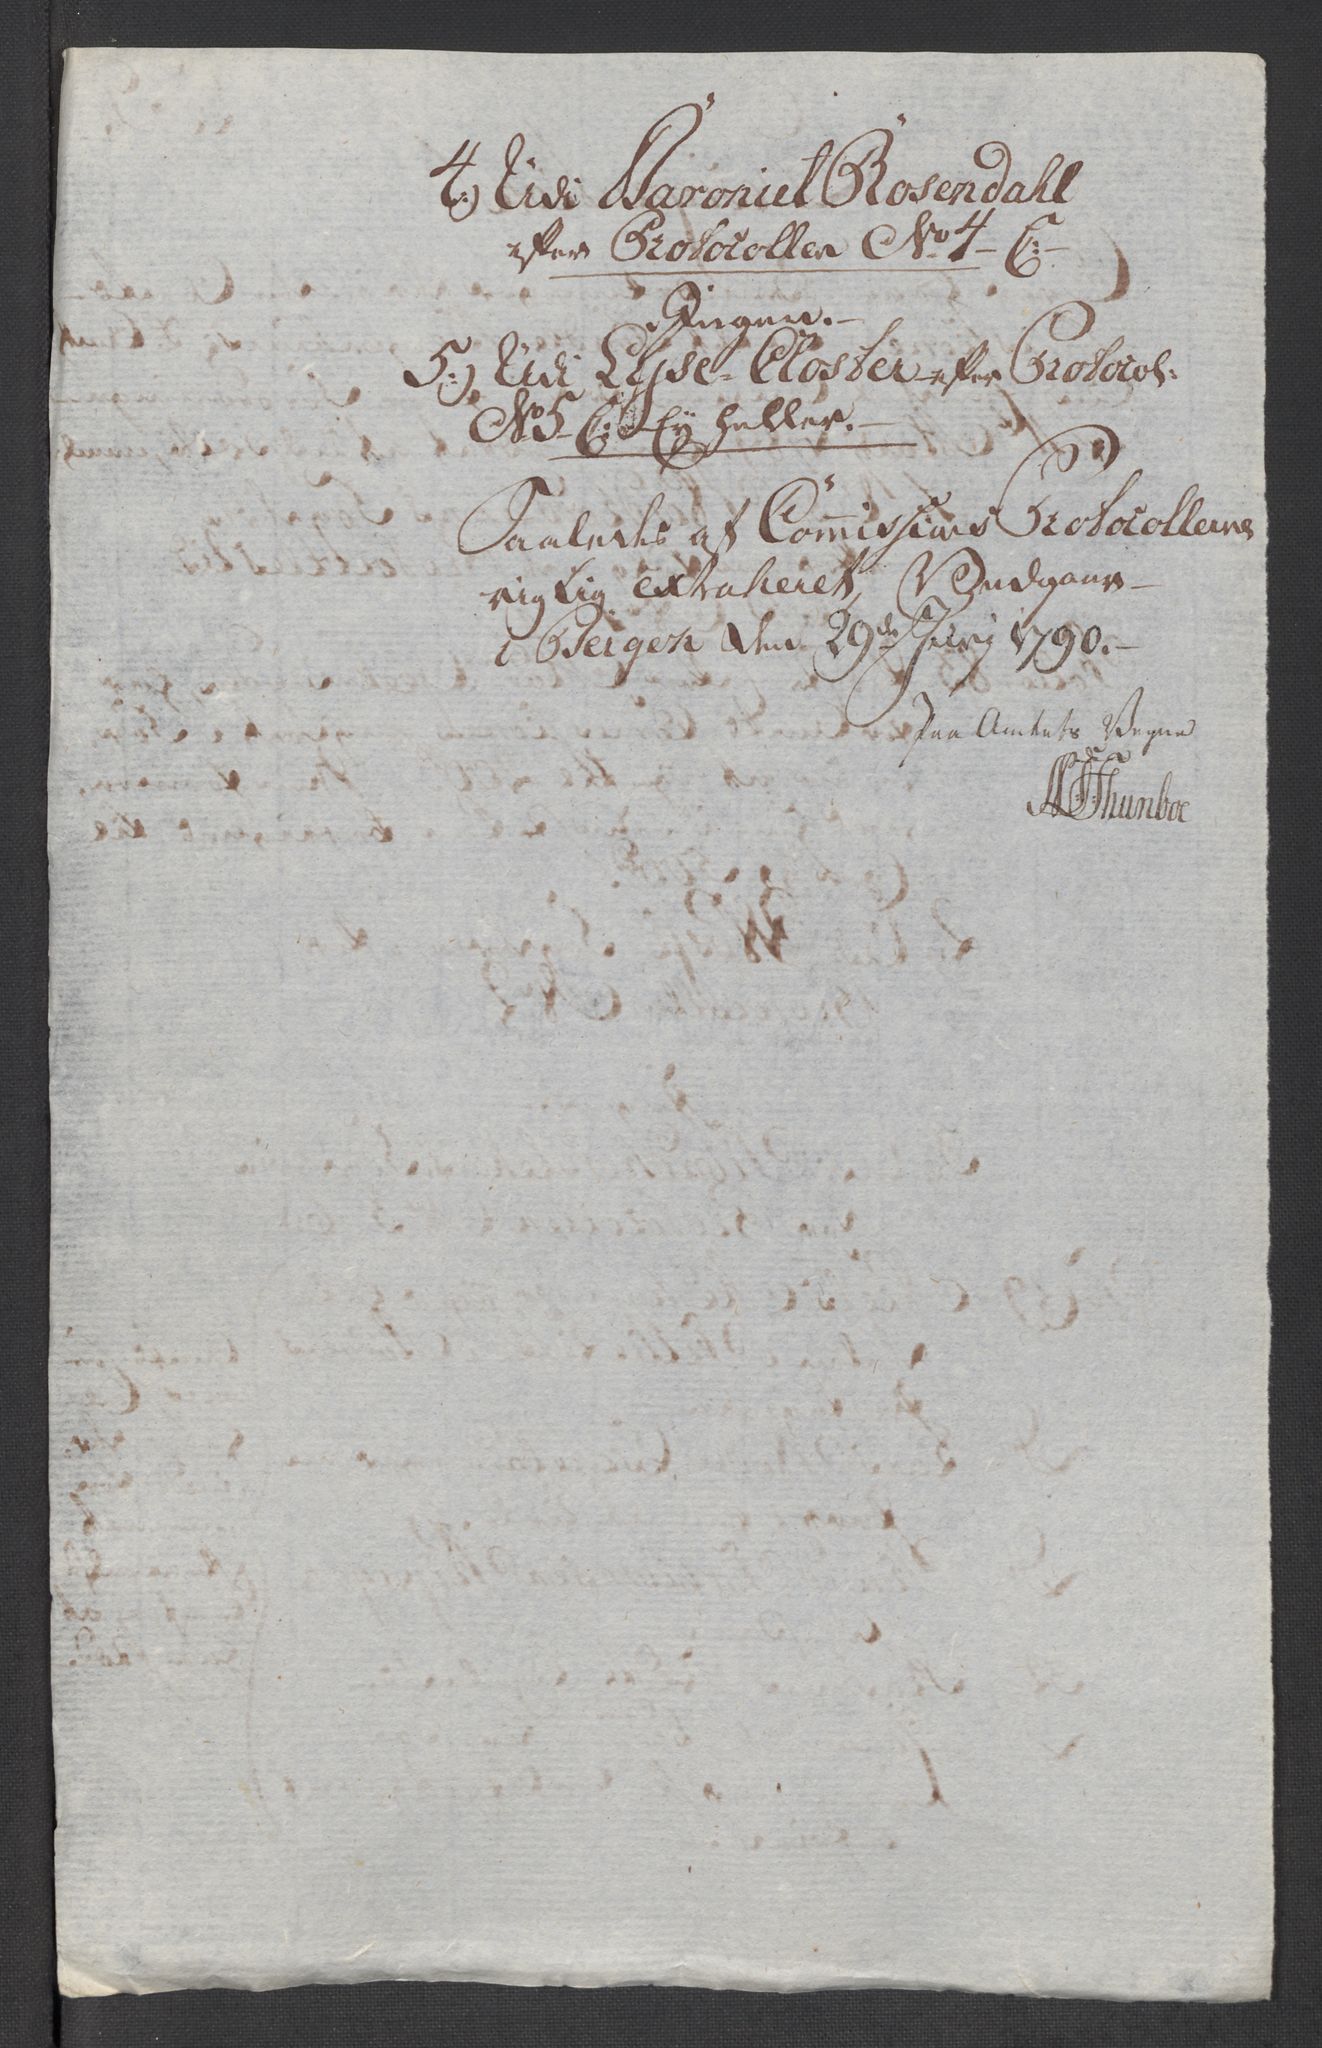 4:) Udi Baroniet Rosendahl
efter Protocollen No 4 - C: -
Ingen. -
5:) Udi Lyse-Closter efter Protocol:
No 5 C: Ey heller. -
Saaledes af Commissions Protocollerne
rigtig extraheret,
i Bergen den 29de Junij 1790. -
Paa Amtets Vegne
Thunboe